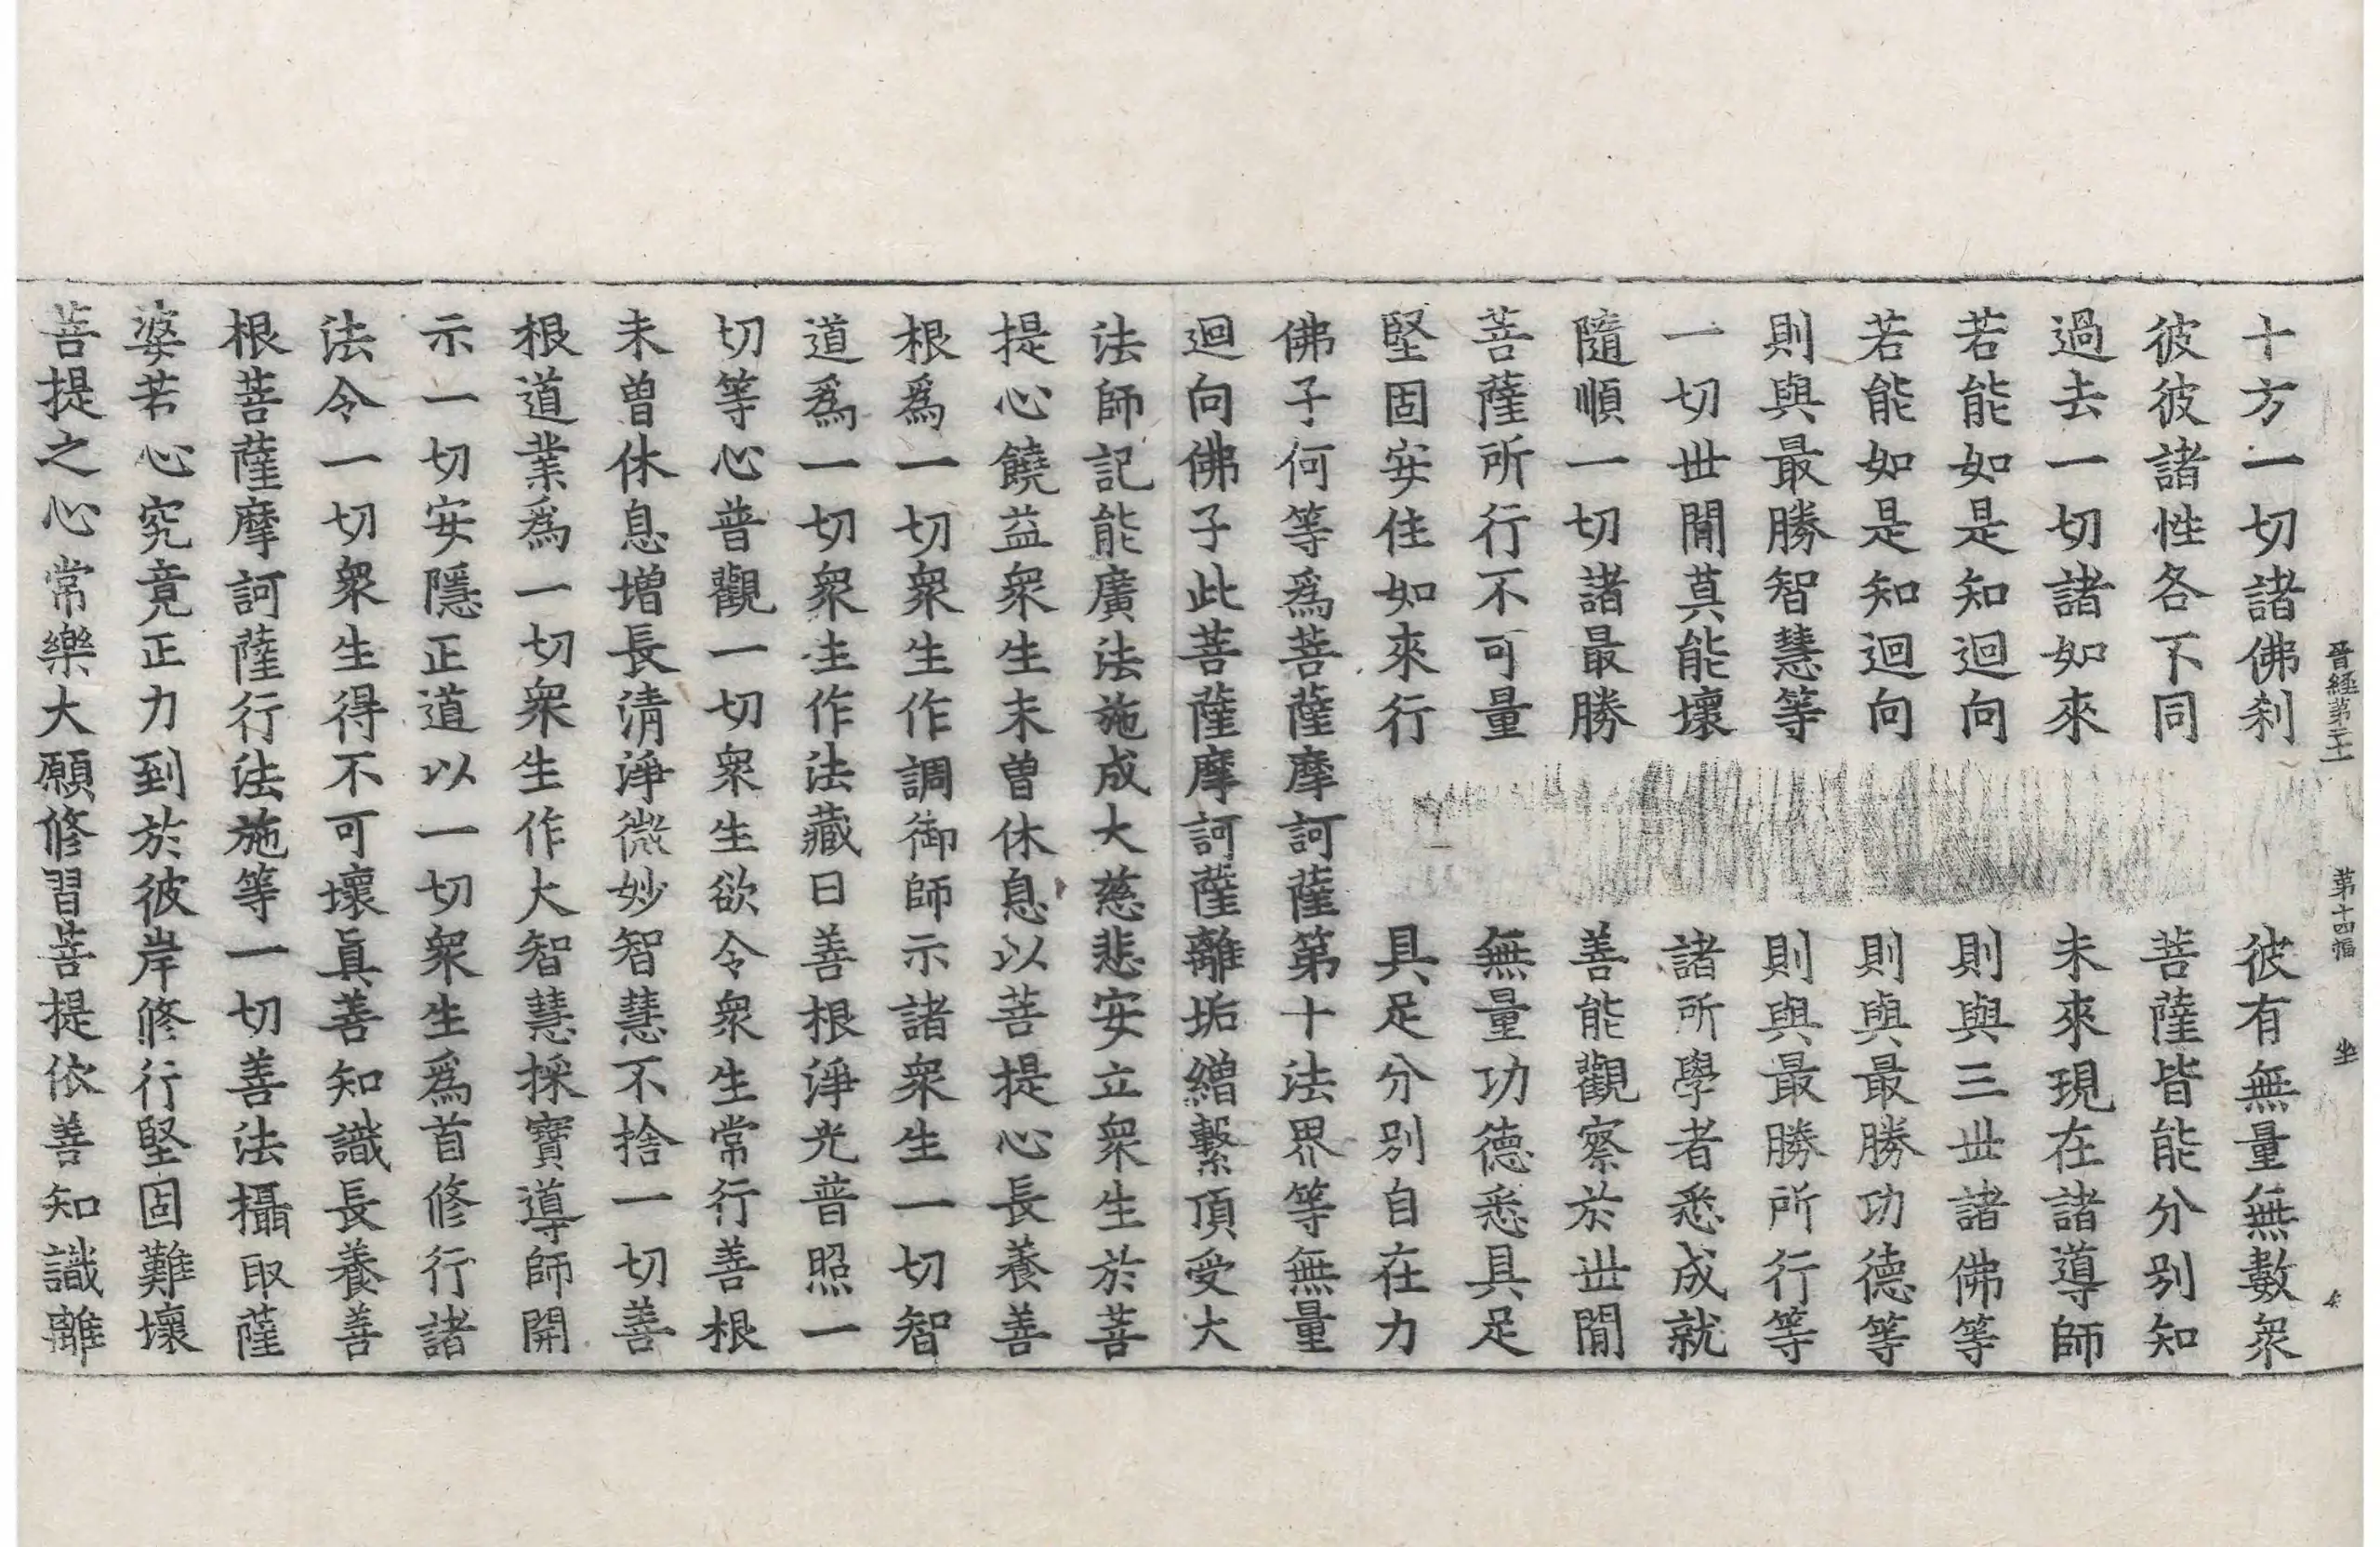 晉經第二十二 第十四幅 坐
十方一切諸佛刹 彼有無量無數衆
彼彼諸性各不同 菩薩皆能分別知
過去一切諸如來 未來現在諸導師
若能如是知迴向 則與三丗諸佛等
若能如是知迴向 則與最勝功德等
則與最勝智慧等 則與最勝所行等
一切丗閒莫能壞 諸所學者悉成就
隨順一切諸最勝 善能觀察於丗閒
菩薩所行不可量 無量功德悉具足
堅固安住如來行 具足分別自在力
佛子何等爲菩薩摩訶薩第十法界等無量
迴向佛子此菩薩摩訶薩離垢繒繫頂受大
法師記能廣法施成大慈悲安立衆生於菩
提心饒益衆生未曽休息以菩提心長養善
根爲一切衆生作調御師示諸衆生一切智
道爲一切衆生作法藏日善根淨光普照一
切等心普觀一切衆生欲令衆生常行善根
未曽休息増長清淨微妙智慧不捨一切善
根道業爲一切衆生作大智慧採寶導師開
示一切安隱正道以一切衆生爲首修行諸
法令一切衆生得不可壞眞善知識長養善
根菩薩摩訶薩行法施等一切善法攝取薩
婆若心究竟正力到於彼岸修行堅固難壞
菩提之心常樂大願修習菩提依善知識離